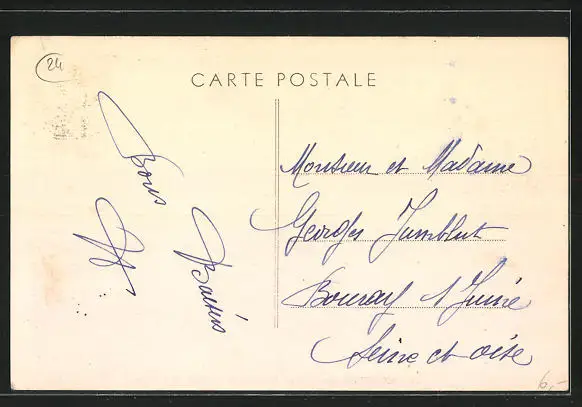 24
CARTE POSTALE
Bons
Baisers
Monsieur et Madame
Georges Jumblut
Bouray s/Juine
Seine et oise
6,-